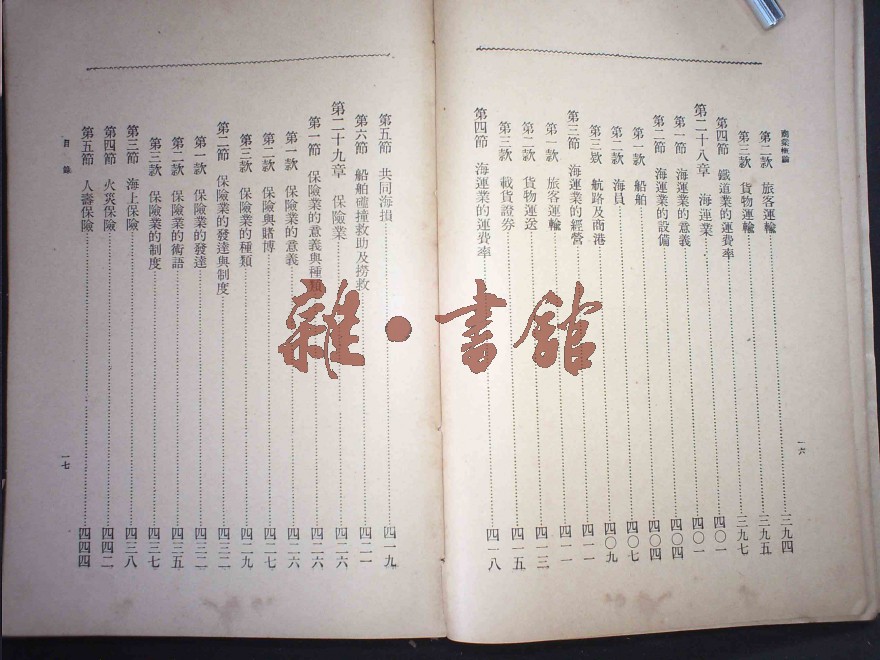 商業概論
第二款　旅客運輸……三九四
第三款　貨物運輸……三九五
第四節　鐵道業的運費率……三九七
第二十八章　海運業……四〇一
第一節　海運業的意義……四〇一
第二節　海運業的設備……四〇四
第一款　船舶……四〇四
第二款　海員……四〇七
第三款　航路及商港……四〇九
第三節　海運業的經營……四一一
第一款　旅客運輸……四一一
第二款　貨物運送……四一三
第三款　載貨證券……四一五
第四節　海運業的運費率……四一八
一六
第五節　共同海損……四一九
第六節　船舶碰撞救助及撈救……四二一
第二十九章　保險業……四二六
第一節　保險業的意義與種類……四二六
第一款　保險業的意義……四二六
第二款　保險與賭博……四二七
第三款　保險業的種類……四二九
第二節　保險業的發達與制度……四三二
第一款　保險業的發達……四三二
第二款　保險業的術語……四三五
第三款　保險業的制度……四三七
第三節　海上保險……四三八
第四節　火災保險……四四二
第五節　人壽保險……四四四
目錄
一七
雜·書館